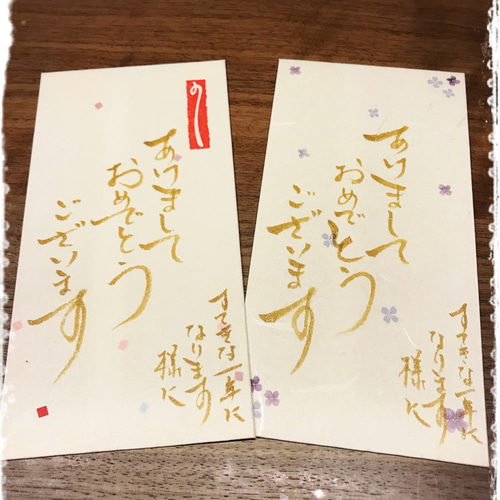 のし
あけまして
おめでとう
ございます
すてきな一年に
なります
様に
あけまして
おめでとう
ございます
すてきな一年に
なります
様に